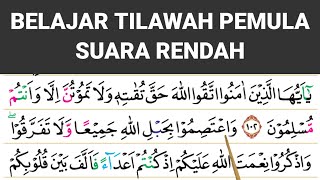 BELAJAR TILAWAH PEMULA
SUARA RENDAH
يٰٓاَيُّهَا الَّذِيْنَ اٰمَنُوا اتَّقُوا اللّٰهَ حَقَّ تُقٰىتِهٖ وَلَا تَمُوْتُنَّ اِلَّا وَاَنْتُمْ
مُّسْلِمُوْنَ ۝١٠٢ وَاعْتَصِمُوْا بِحَبْلِ اللّٰهِ جَمِيْعًا وَّلَا تَفَرَّقُوْا ۖ
وَاذْكُرُوْا نِعْمَتَ اللّٰهِ عَلَيْكُمْ اِذْ كُنْتُمْ اَعْدَاۤءً فَاَلَّفَ بَيْنَ قُلُوْبِكُمْ